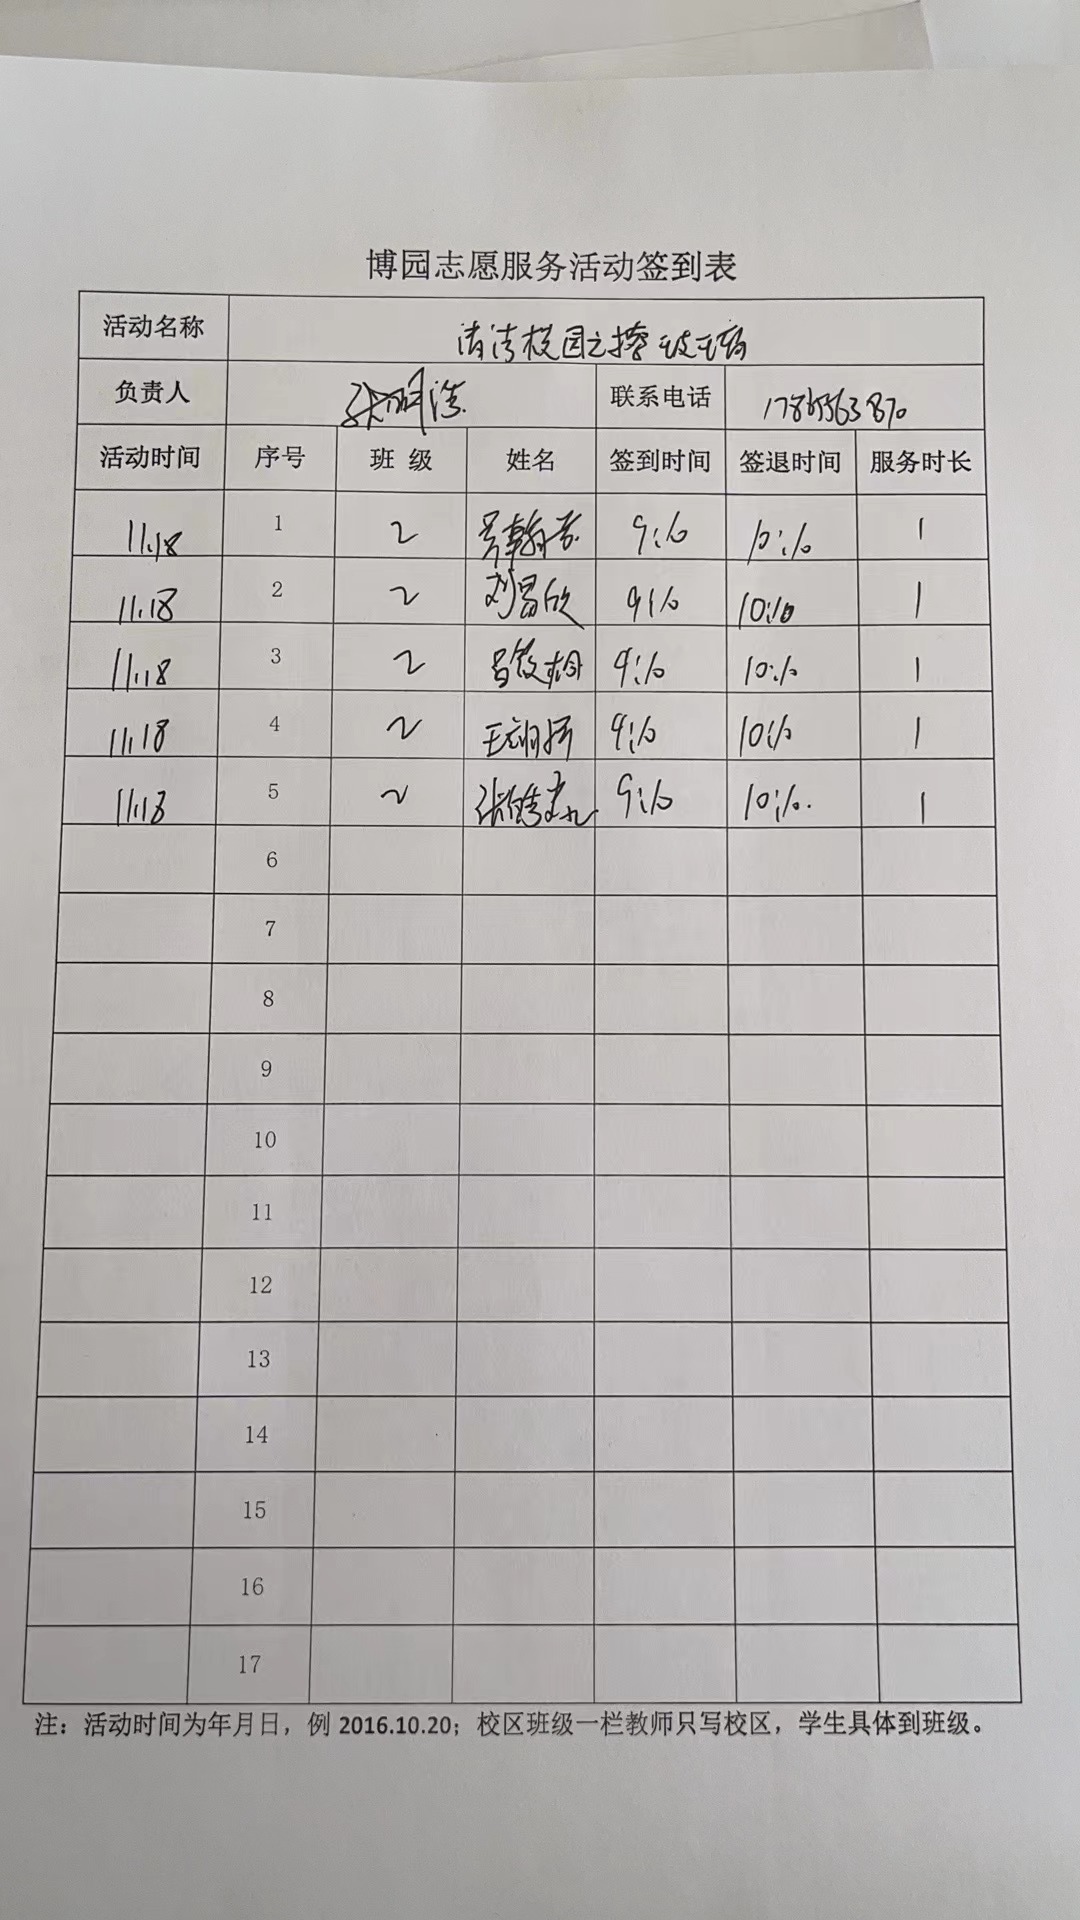 博园志愿服务活动签到表
活动名称 清洁校园之擦玻璃
负责人 张明浩 联系电话
活动时间 序号 班 级 姓名 签到时间 签退时间 服务时长
11.18 1 2 9:10 10:10 1
11.18 2 2 刘昌欣 9:10 10:10 1
11.18 3 2 9:10 10:10 1
11.18 4 2 9:10 10:10 1
11.18 5 2 9:10 10:10. 1
6
7
8
9
10
11
12
13
14
15
16
17
注：活动时间为年月日，例 2016.10.20；校区班级一栏教师只写校区，学生具体到班级。